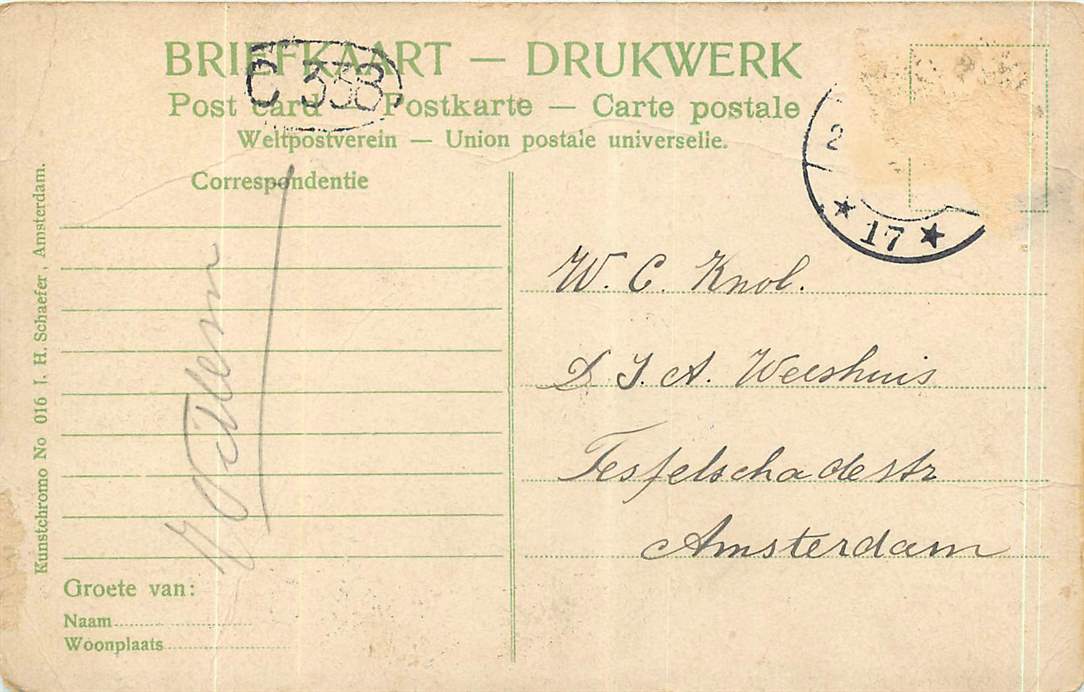 BRIEFKAART — DRUKWERK
C 338
Post card — Postkarte — Carte postale
Weltpostverein — Union postale universelle.
Correspondentie
2
★ 17 ★
W. C. Knol.
D. J. A. Weeshuis
Tesselschadestr
Amsterdam
Groete van:
Naam
Woonplaats
Kunstchromo No 016 J. H. Schaefer, Amsterdam.